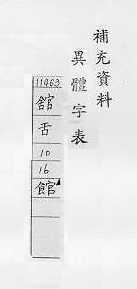 補充資料
異體字表
11963
舘
舌
10
16
館